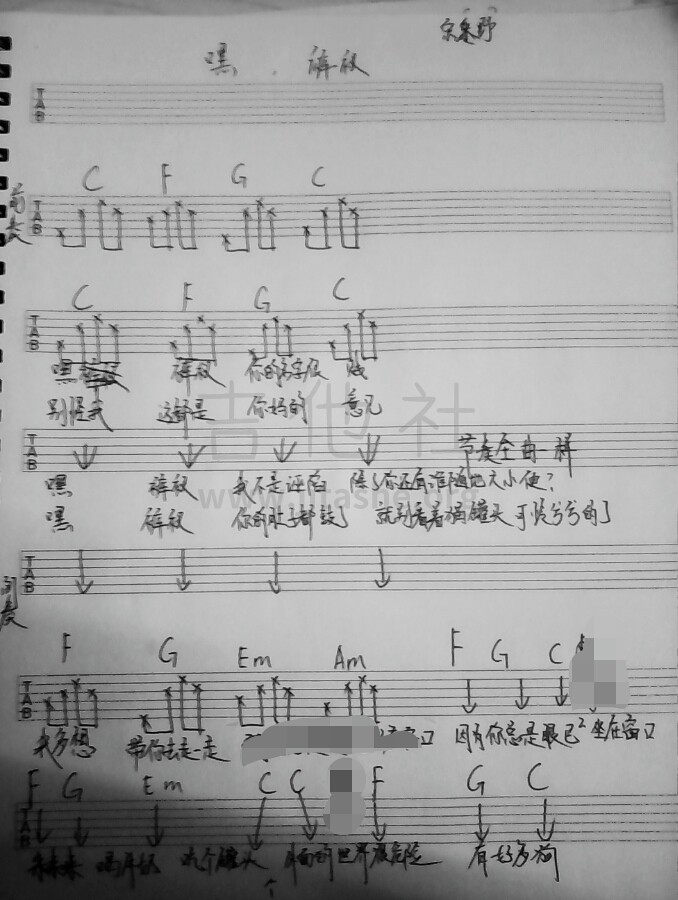 宋冬野
嘿，裤衩
TAB
前奏
C F G C
TAB
C F G C
TAB
嘿 裤衩 你的名字很 贱
别怪我 这都是 你妈的 意见
TAB
节奏全曲一样
嘿 裤衩 我不是诬陷 除了你还有谁随地大小便?
嘿 裤衩 你的肚子都鼓了 就别看着猫罐头 可怜兮兮的了
TAB
间奏
F G Em Am F G C
TAB
我多想 带你去走走 窗口 因为你总是眼巴2坐在窗口
F G Em C C F G C
TAB
来来来 吃个罐头 外面的世界很危险 有好多狗
吉他社
www.jitashe.org